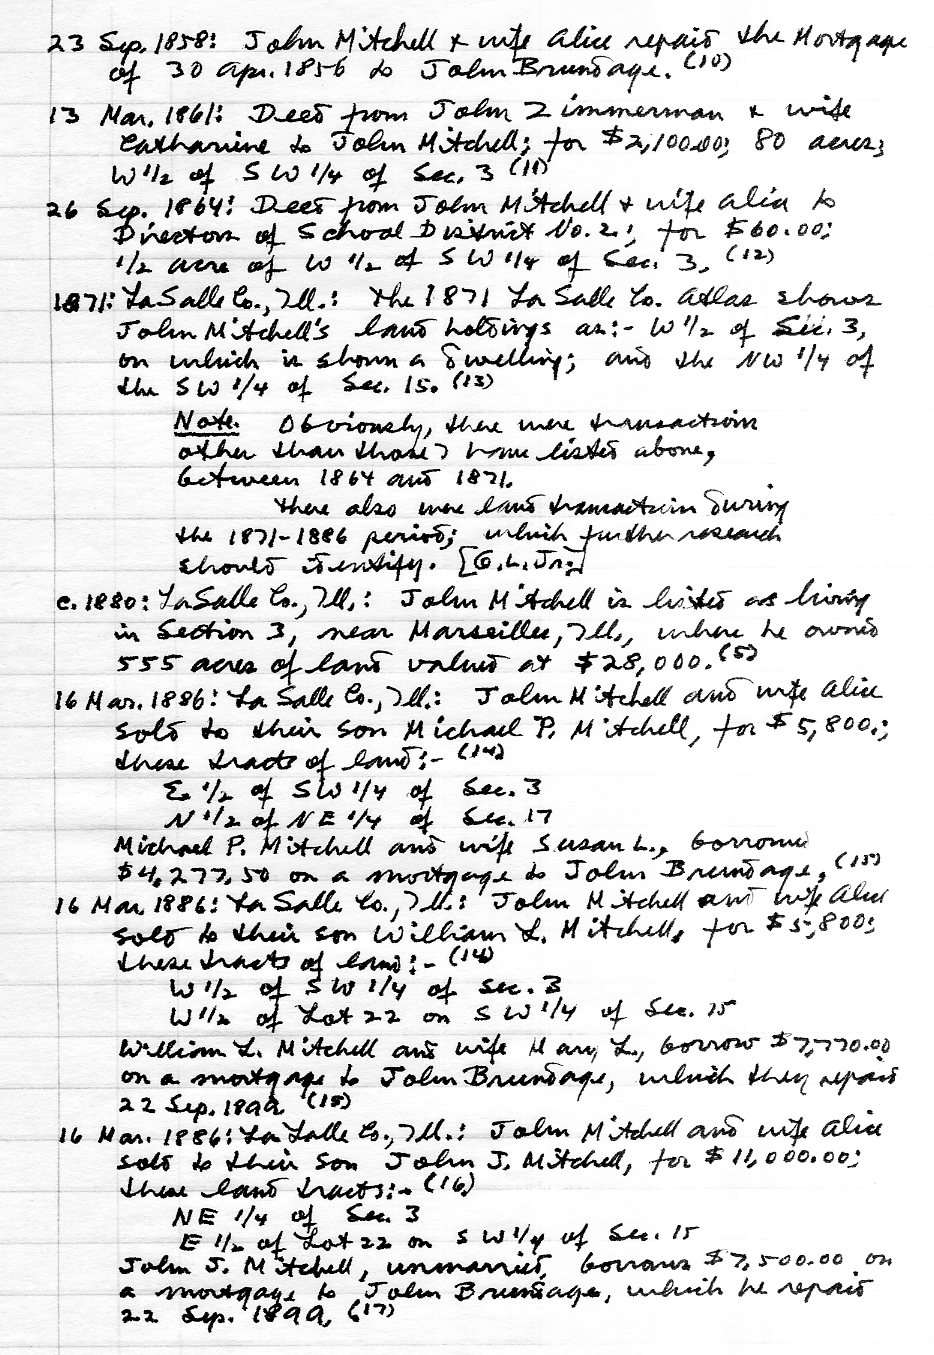 23 Sep. 1858: John Mitchell & wife Alice repaid the Mortgage
of 30 Apr. 1856 to John Brundage. (10)
13 Mar. 1861: Deed from John Zimmerman & wife
Catharine to John Mitchell; for $2,100.00; 80 acres;
W 1/2 of SW 1/4 of Sec. 3 (11)
26 Sep. 1864: Deed from John Mitchell & wife Alice to
Directors of School District No. 2.; for $60.00;
1/2 acre of W 1/2 of SW 1/4 of Sec. 3. (12)
1871: LaSalle Co., Ill.: The 1871 La Salle Co. Atlas shows
John Mitchell's land holdings as:- W 1/2 of Sec. 3,
on which is shown a dwelling; and the NW 1/4 of
the SW 1/4 of Sec. 15. (13)
Note. Obviously, there were transactions
other than those I have listed above,
between 1864 and 1871.
There also were land transactions during
the 1871-1886 period; which further research
should identify. [G.L.Jr.]
c. 1880: LaSalle Co., Ill.: John Mitchell is listed as living
in Section 3, near Marseilles, Ill., where he owned
555 acres of land valued at $28,000. (5)
16 Mar. 1886: La Salle Co., Ill.: John Mitchell and wife Alice
sold to their son Michael P. Mitchell, for $5,800.;
these tracts of land:- (14)
E 1/2 of SW 1/4 of Sec. 3
N 1/2 of NE 1/4 of Sec. 17
Michael P. Mitchell and wife Susan L., borrowed
$4,277.50 on a mortgage to John Brundage. (15)
16 Mar. 1886: La Salle Co., Ill.: John Mitchell and wife Alice
sold to their son William L. Mitchell, for $5,800;
these tracts of land:- (14)
W 1/2 of SW 1/4 of Sec. 3
W 1/2 of Lot 22 on SW 1/4 of Sec. 15
William L. Mitchell and wife Mary L., borrow $7,770.00
on a mortgage to John Brundage, which they repaid
22 Sep. 1899. (15)
16 Mar. 1886: La Salle Co., Ill.: John Mitchell and wife Alice
sold to their son John J. Mitchell, for $11,000.00;
these land tracts:- (16)
NE 1/4 of Sec. 3
E 1/2 of Lot 22 on SW 1/4 of Sec. 15
John J. Mitchell, unmarried, borrows $7,500.00 on
a mortgage to John Brundage, which he repaid
22 Sep. 1899. (17)